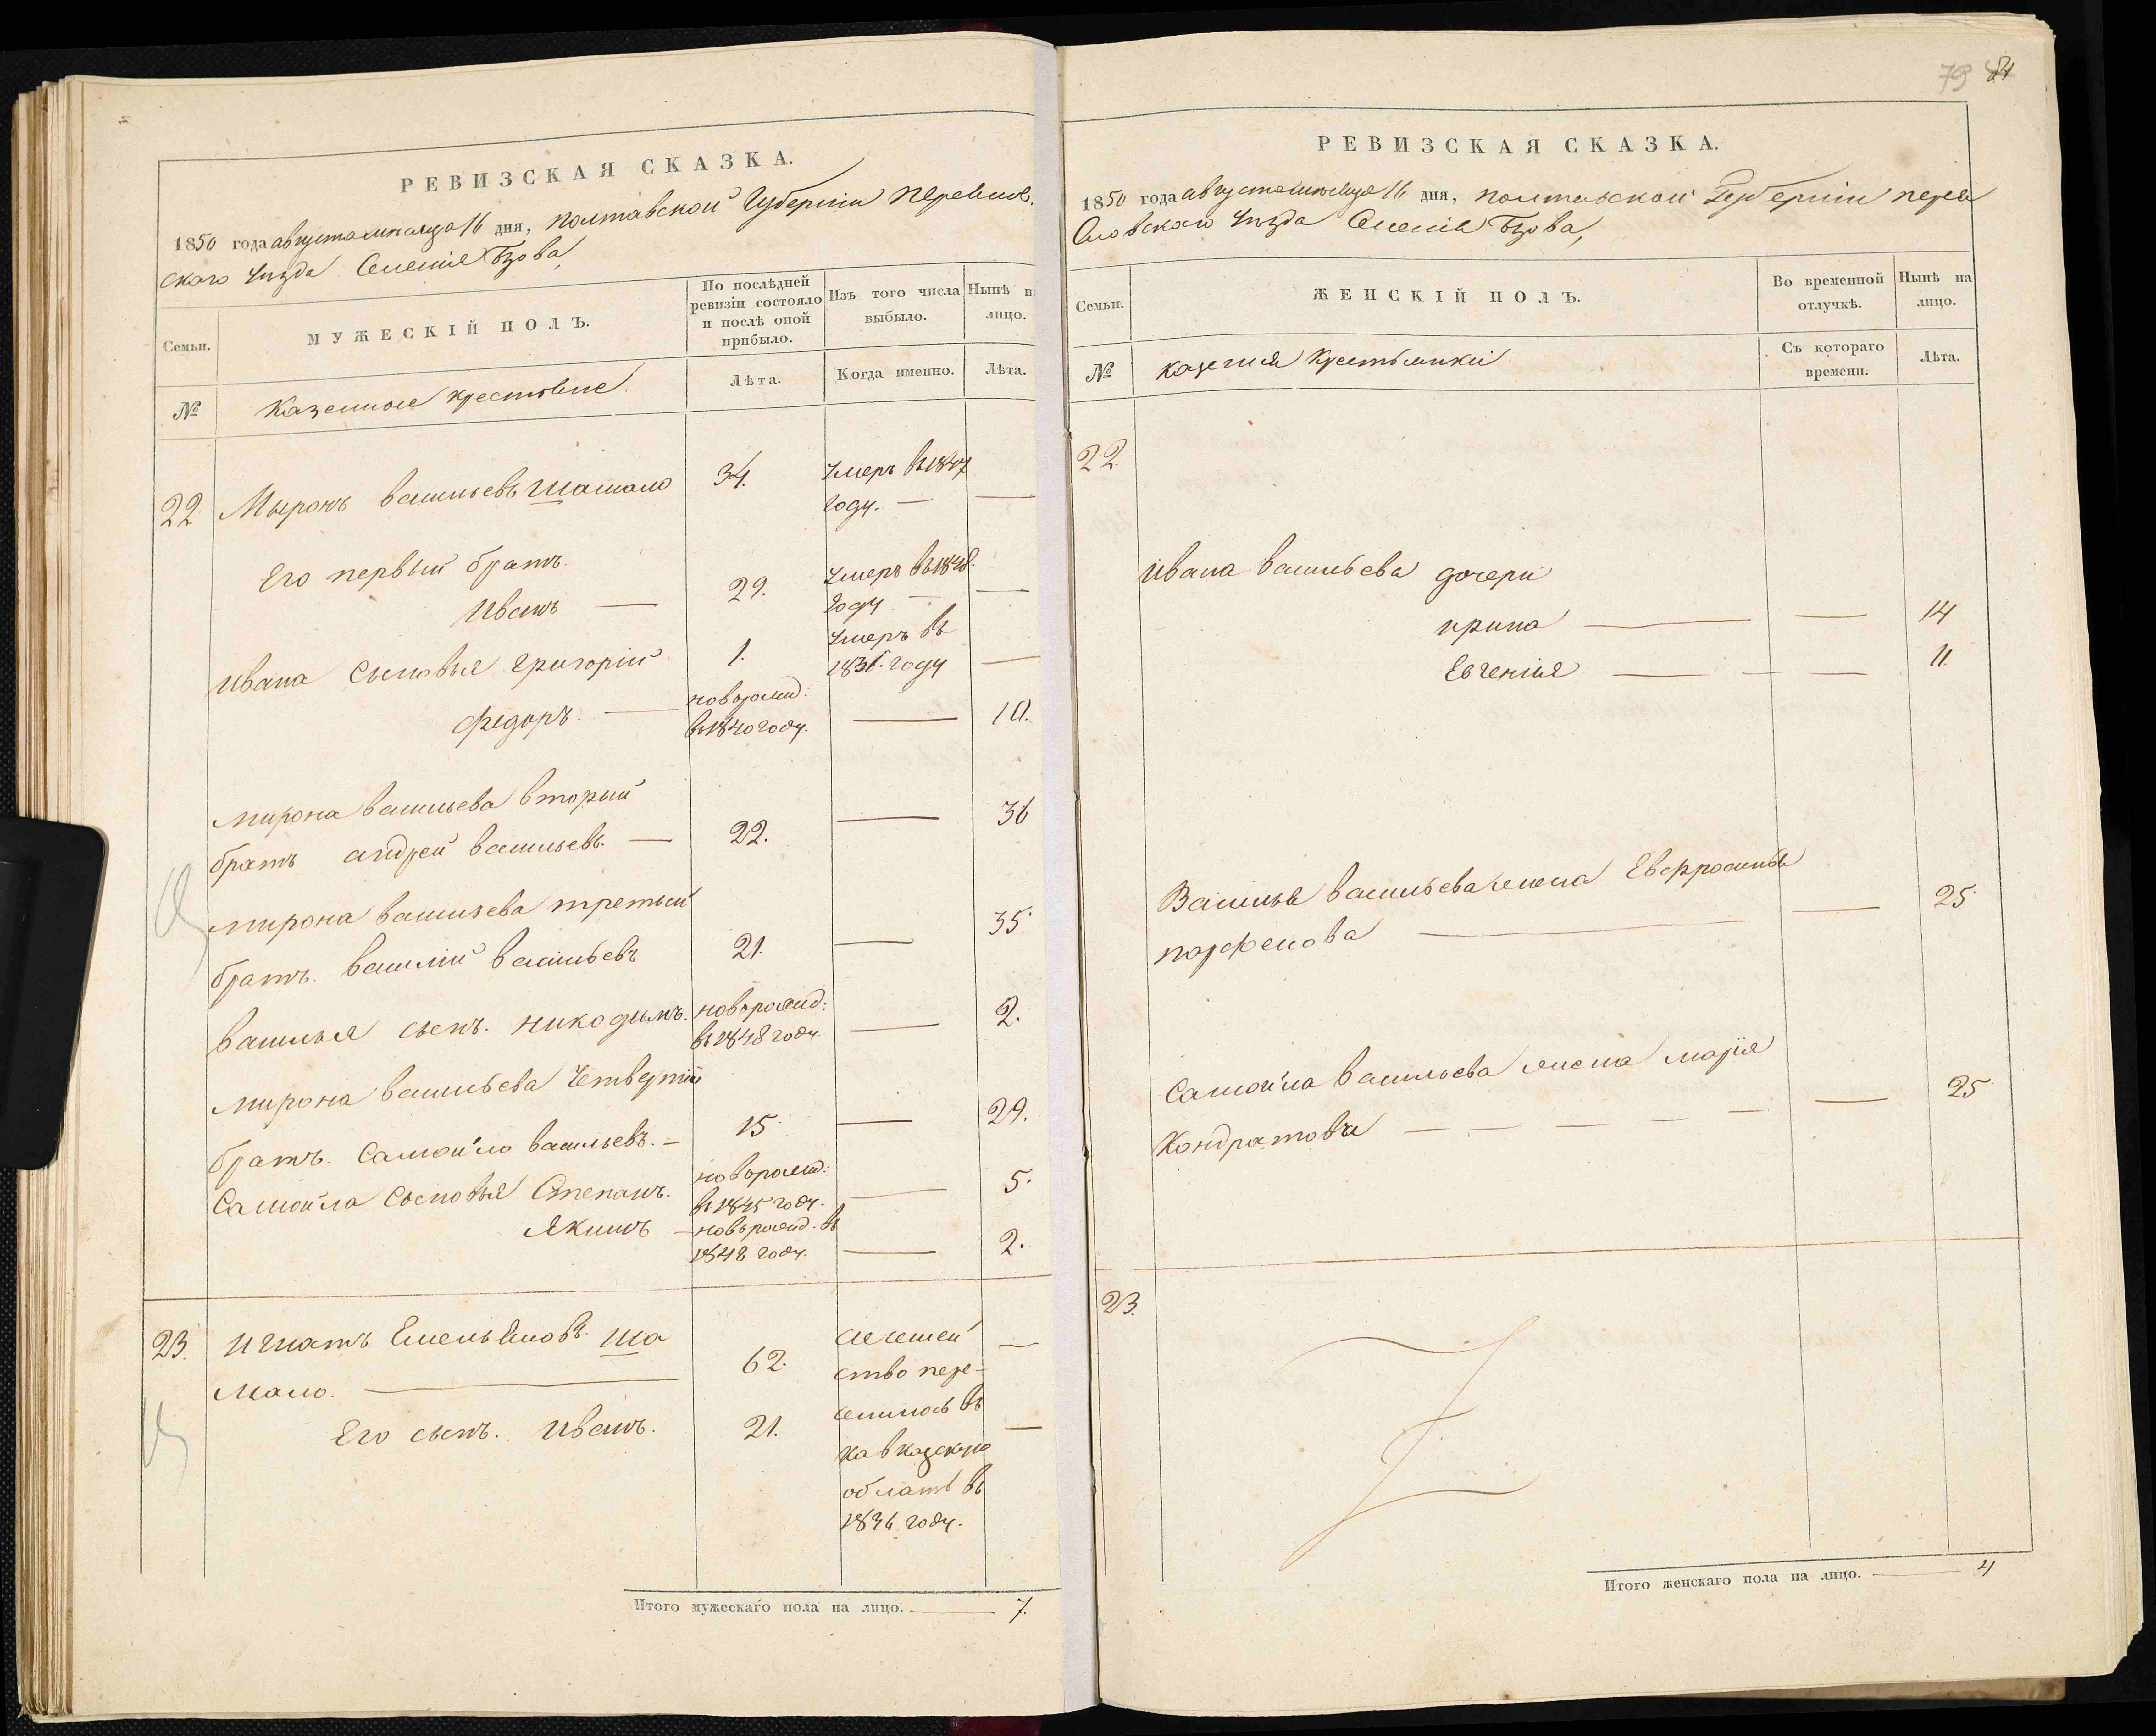 РЕВИЗСКАЯ СКАЗКА.
1850 года августа месяца 16 дня, Полтавской Губернии Переяслов
ского Уѣзда Селенія Бзова,
Семьи.
МУЖЕСКІЙ ПОЛЪ.
По послѣдней ревизіи состояло и послѣ оной прибыло.
Изъ того числа выбыло.
Нынѣ на лицо.
№
Казенные крестьяне
Лѣта.
Когда именно.
Лѣта.
22 Миронъ Васильевъ Шамало 34. Умеръ въ 1847
году. —
Его первый братъ
Иванъ — 29. Умеръ въ 1848
году —
Ивана сыновья Григорій 1. Умеръ въ
1836 году —
Федоръ. — новорожд:
въ 1840 году. — 10.
Мирона Васильева вторый
братъ Андрей Васильевъ. — 22. — 36
Мирона Васильева третый
братъ. Василій Васильевъ 21. — 35
Василья сынъ. Никодимъ. новорожд:
въ 1848 году. — 2.
Мирона Васильева Четвертый
братъ. Самойло Васильевъ. — 15. — 29.
Самойла сыновья Степанъ. новорожд:
въ 1845 году. — 5.
Якимъ — новорожд. въ
1848 году. — 2.
23. Игнатъ Емельяновъ Ша
мало. — 62. семей
ство пере-
Его сынъ. Иванъ. 21. селилось въ
кавказскую
область въ
1836 году.
Итого мужескаго пола на лицо. — 7.
79 84
РЕВИЗСКАЯ СКАЗКА.
1850 года августа месяца 16 дня, Полтавской Губернии Перея
словского Уѣзда Селенія Бзова,
Семьи.
ЖЕНСКІЙ ПОЛЪ.
Во временной отлучкѣ.
Нынѣ на лицо.
№
казенныя крестьянки
Съ котораго времени.
Лѣта.
22.
Ивана Васильева дочери
Ирина — — 14
Евгенія — — — 11.
Василья Васильева жена Евфросинья
Парфенова — — 25
Самойла Васильева жена Марія
Кондратова — — — — — 25
23.
Итого женскаго пола на лицо. — 4